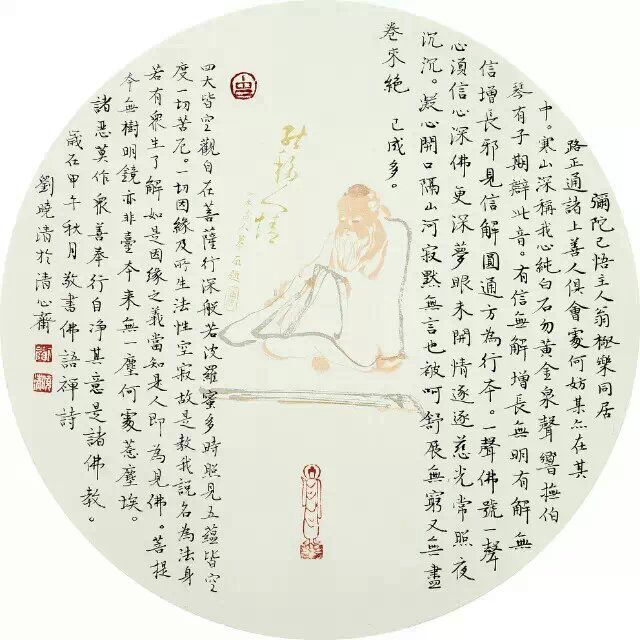 彌陀已悟主人翁極樂同居
路正通諸上善人俱會處何妨某亦在其
中。寒山深稱我心純白石勿黃金泉聲響撫伯
琴有子期辯此音。有信無解增長無明有解無
信增長邪見信解圓通方為行本。一聲佛號一聲
心須信心深佛更深夢眼未開情逐逐慈光常照夜
沉沉。凝心開口隔山河寂默無言也被呵舒展無窮又無盡
卷來絕 已成多。
四大皆空觀自在菩薩行深般若波羅蜜多時照見五蘊皆空
度一切苦厄。一切因緣及所生法性空寂故是教我說名為法身
若有眾生了解如是因緣之義當知是人即為見佛。菩提
本無樹明鏡亦非臺本來無一塵何處惹塵埃。
諸惡莫作眾善奉行自淨其意是諸佛教。
歲在甲午秋月敬書佛語禪詩
劉曉清於清心齋